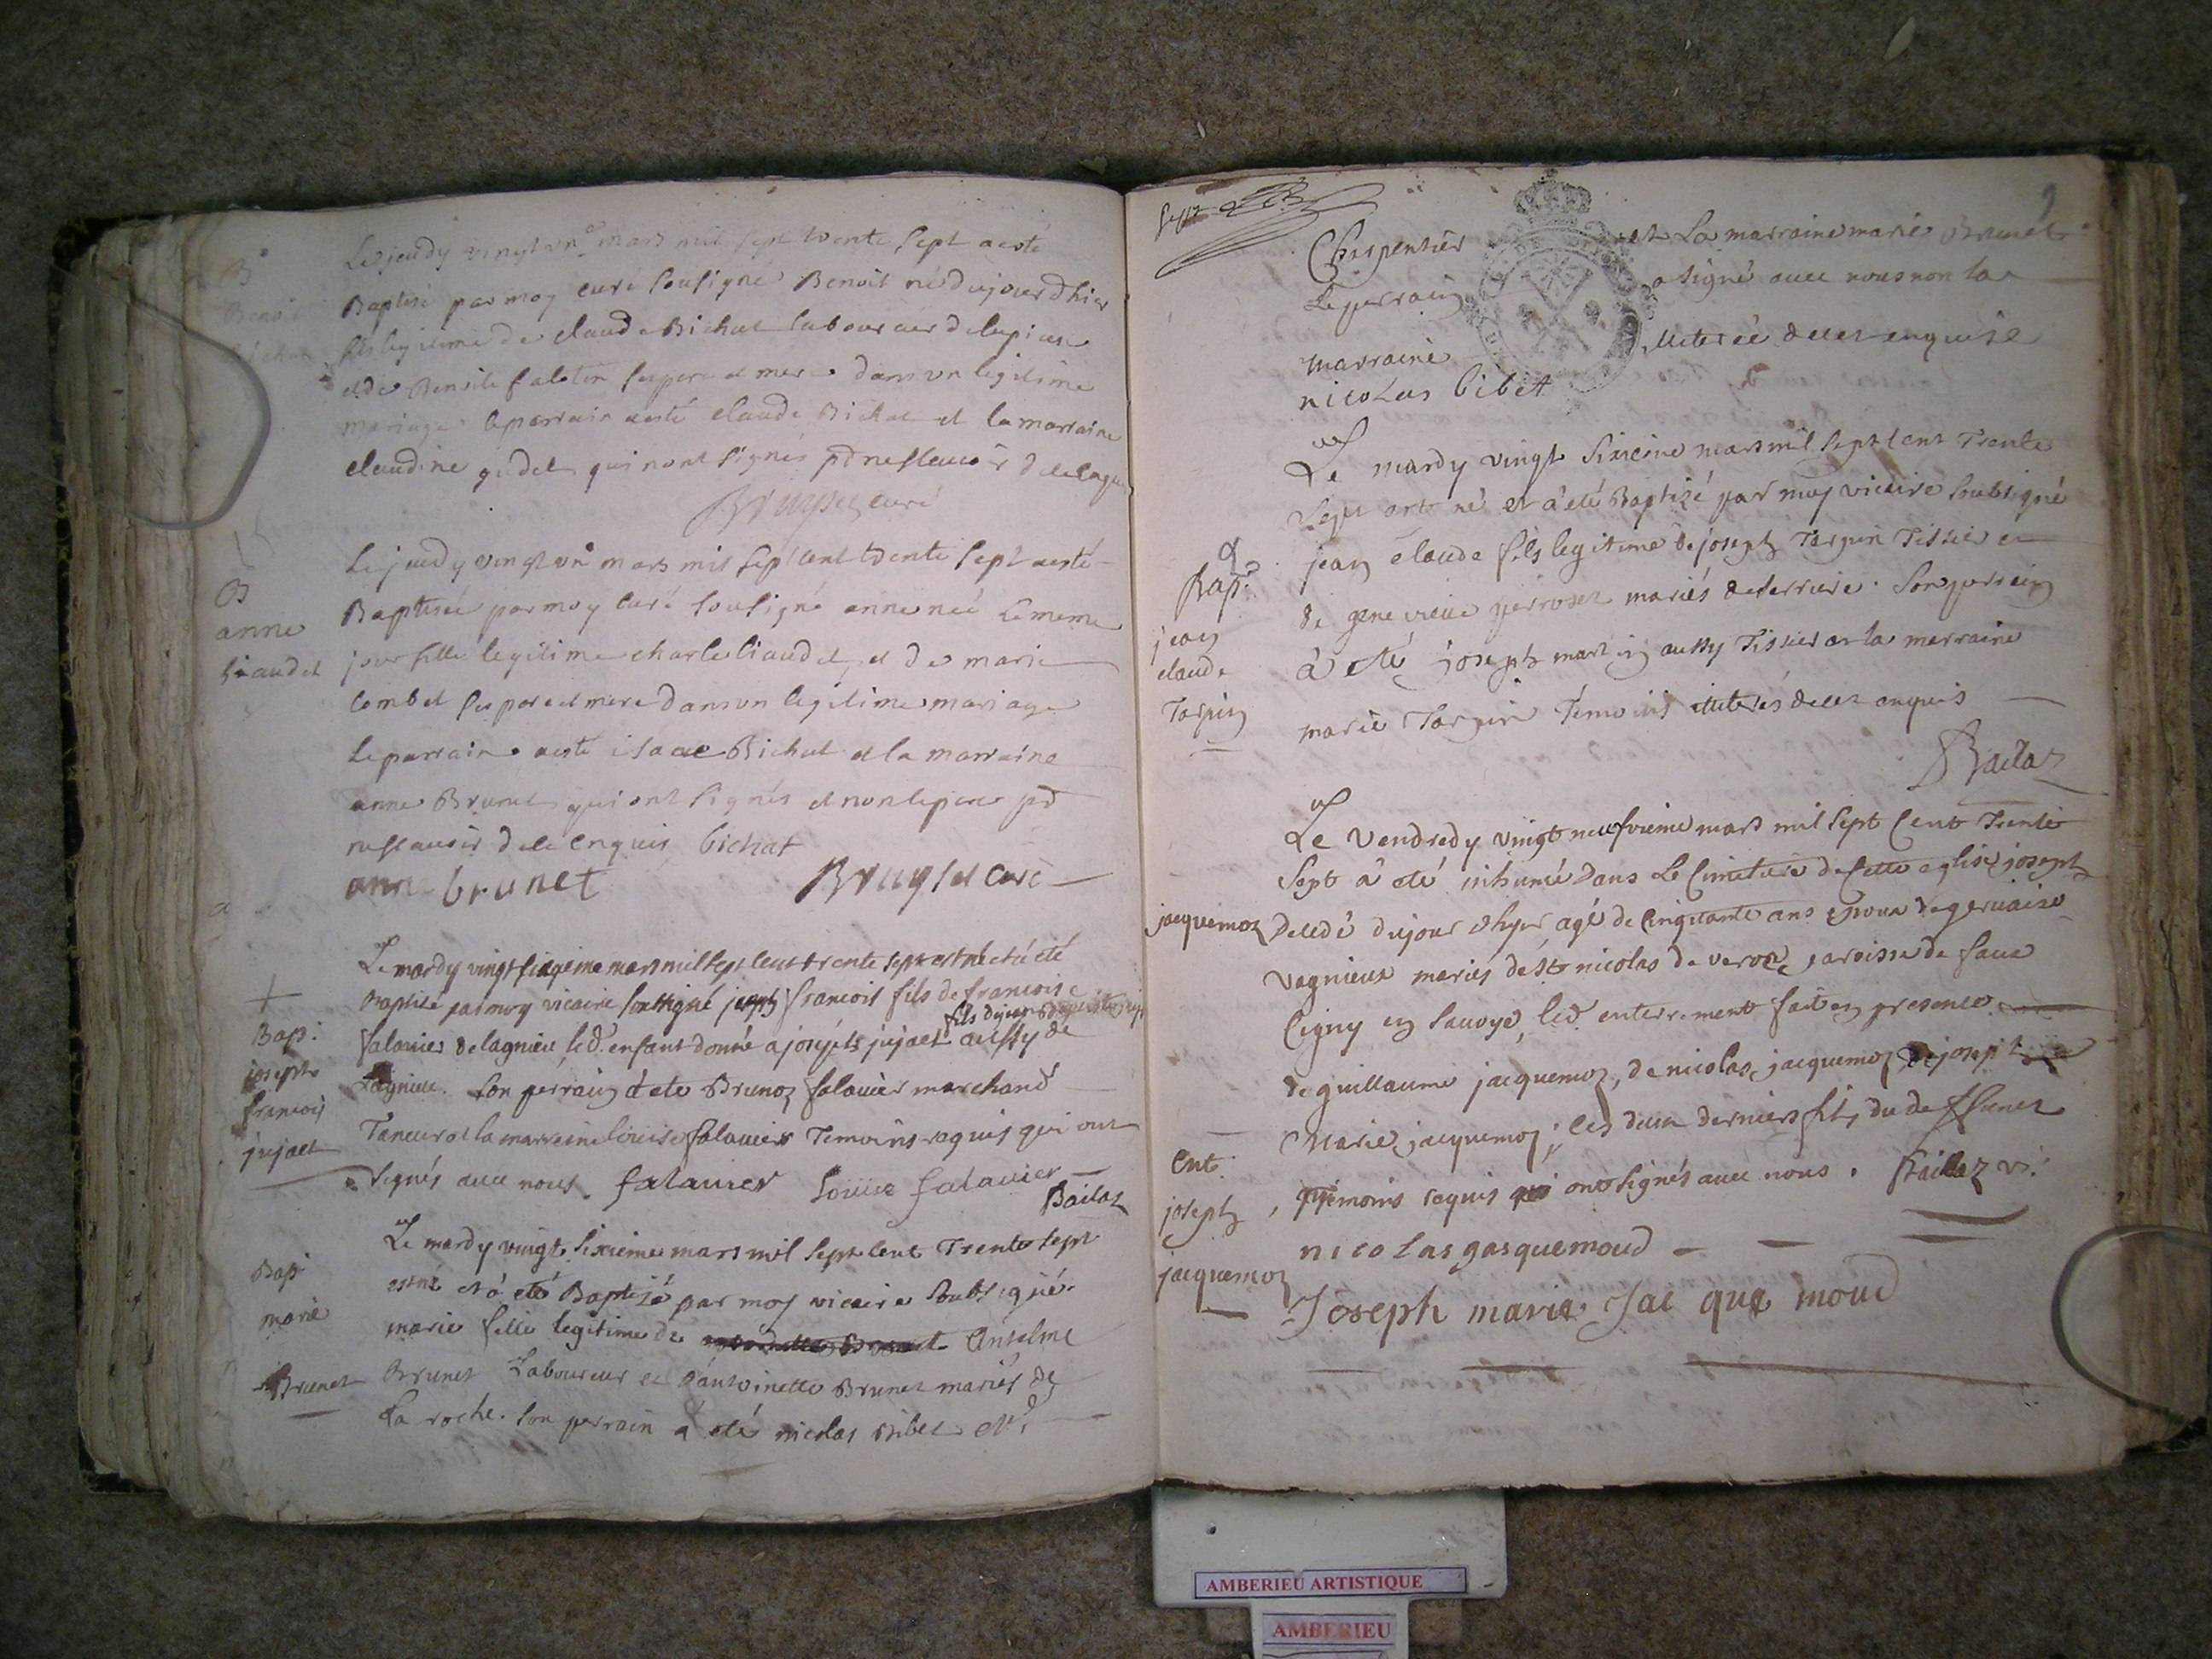 B
Benoit
Bichat
Le jeudy vingt un mars mil sept trente sept a esté
Baptisé par moy curé sousigné Benoit né dujourdhier
fils legitime de claude Bichat laboureur
et de Benoite falatin ses pere et mere dans un legitime
mariage le parrain a esté claude Bichat et la marraine
claudine qui nont signés pr ne sçavoir
Bruyset curé
B
anne
liaudet
Le jeudy vingt un mars mil sept cent trente sept a esté
Baptisée par moy curé sousigné anne née le meme
jour fille legitime charle liaudet et de marie
combet ses pere et mere dans un legitime mariage
le parrain a esté isaac Bichat et la marraine
anne Brunet qui ont signés et non le pere pr
ne sçavoir de ce enquis bichat
anne brunet Bruyset curé
Bap:
joseph
francois
jujaet
Le mardy vingt sixieme mars mil sept cent trente sept est né et a été
Baptisé par moy vicaire soussigné joseph francois fils de francoise
falavier de lagnieu, led. enfant donné a joseph jujaet fils aussy de
Lagnieu. son perrain a ete Brunoz falavier marchand
Taneur et la marreine louise falavier Temoins requis qui ont
signés avec nous. falavier Louise falavier
Bailat
Bap
marie
Brunet
Le mardy vingt sixieme mars mil sept cent Trente sept
est né et a eté Baptisé par moy vicaire soubsigné
marie fille legitime de Anselme
Brunet Laboureur et d'antoinette Brunet mariés de
La roche. son perrain a eté nicolas Bibet Me
9
Charpentier et La marraine marie Brunet
Le perrain a signé avec nous non la
marraine illiterée de ce enquise
nicolas bibet
Bap.
jean
claude
Tarpin
Le mardy vingt sixieme mars mil sept cent Trente
sept est né et a eté Baptizé par moy vicaire soubsigné
jean claude fils legitime de joseph Tarpin Tissier et
de genevieve perroset mariés de terriere. Son perrain
à eté joseph martin aussy Tissier et la marraine
marie Tarpin Temoins illiterés de ce enquis
Bailat
Le vendredy vingt neufvieme mars mil sept Cent Trente
sept a eté inhumé dans Le Cimetiere de cette eglise joseph
jacquemoz Decedé dujour dhyer agé de Cinquante ans epoux de gervaise
vagnieux mariés de St nicolas de veroce paroisse de
en savoye, led. enterrement fait en presence
de guillaume jacquemoz, de nicolas jacquemoz de joseph
Marie jacquemoz; les deux derniers fils du deffunct
Ent.
joseph
jacquemoz
temoins requis qui ont signés avec nous. Bailat vi.
nicolas gasquemoud
Joseph marie Jac que moud
AMBERIEU ARTISTIQUE
AMBERIEU